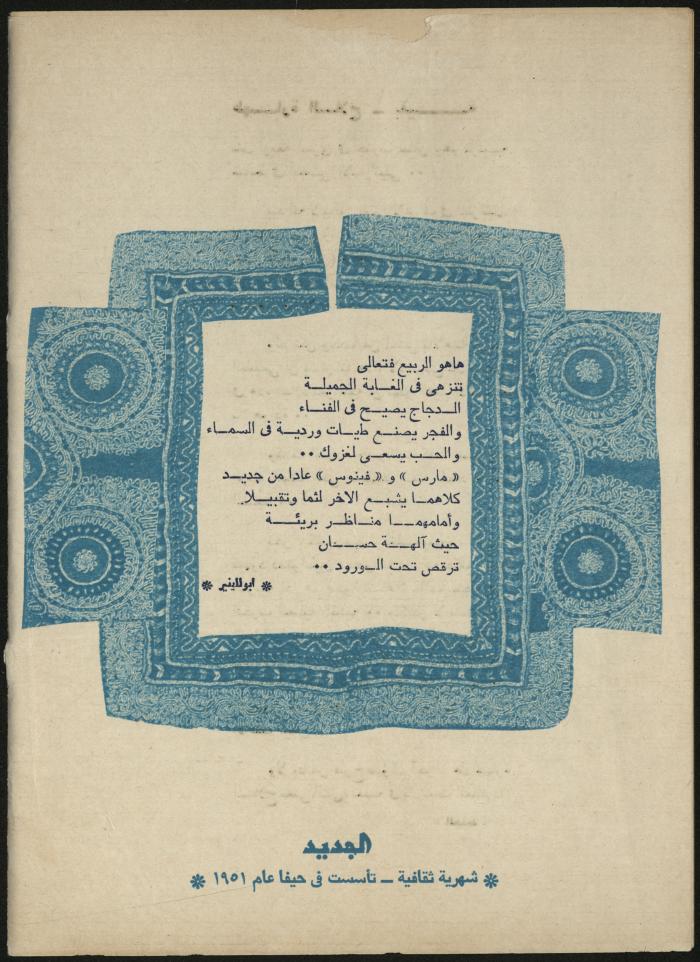 هاهو الربيع فتعالى
تتنزهى فى الغابة الجميلة
الدجاج يصيح فى الفناء
والفجر يصنع طيات وردية فى السماء
والحب يسعى لغزوك ..
« مارس » و « فينوس » عادا من جديد
كلاهما يشبع الاخر لثما وتقبيلا
وأمامهما مناظر بريئة
حيث آلهة حسان
ترقص تحت الورود ..
* ابولاينير *
الجديد
* شهرية ثقافية ــ تأسست فى حيفا عام ١٩٥١ *